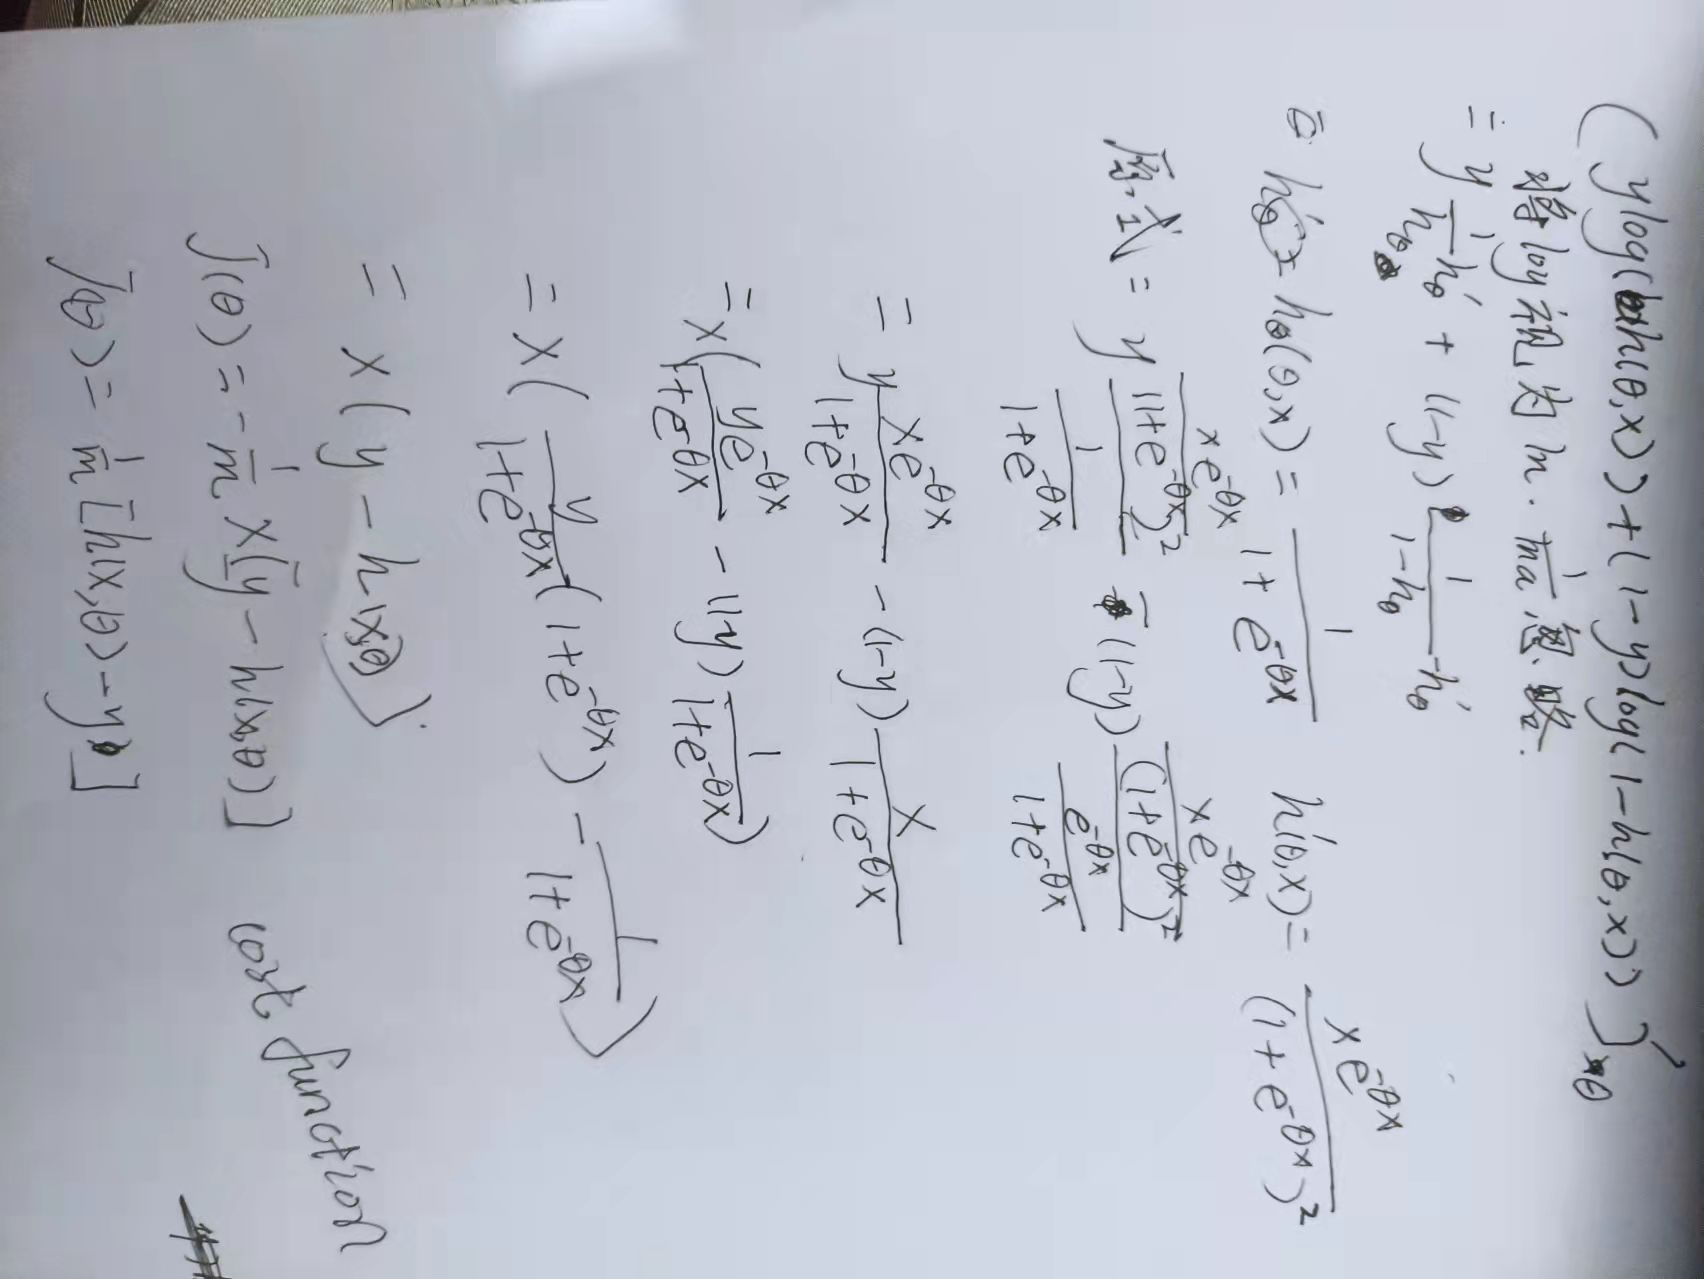 ( ylog(h(θ,x))+(1-y)log(1-h(θ,x)) )'θ
将log视为ln. 1/lna 忽略.
= y 1/hθ h'θ + (1-y) 1/(1-hθ) -h'θ
h'θ = hθ(θ,x) = 1/(1+e^(-θx)) h'(θ,x) = xe^(-θx)/(1+e^(-θx))^2
原式 = y (xe^(-θx)/(1+e^(-θx))^2)/(1/(1+e^(-θx))) - (1-y) (xe^(-θx)/(1+e^(-θx))^2)/(e^(-θx)/(1+e^(-θx)))
= y xe^(-θx)/(1+e^(-θx)) - (1-y) x/(1+e^(-θx))
= x( ye^(-θx)/(1+e^(-θx)) - (1-y) 1/(1+e^(-θx)) )
= x( y/(1+e^(-θx)) (1+e^(-θx)) - 1/(1+e^(-θx)) )
= x( y - h(x,θ) )
J(θ) = - 1/m x[y - h(x,θ)] cost function
J(θ) = 1/m [h(x,θ) - y]